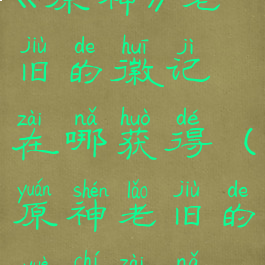 《原神》老
jiù de huī jì
旧的徽记
zài nǎ huò dé
在哪获得（
yuán shén lǎo jiù de
原神老旧的
chí zài nǎ